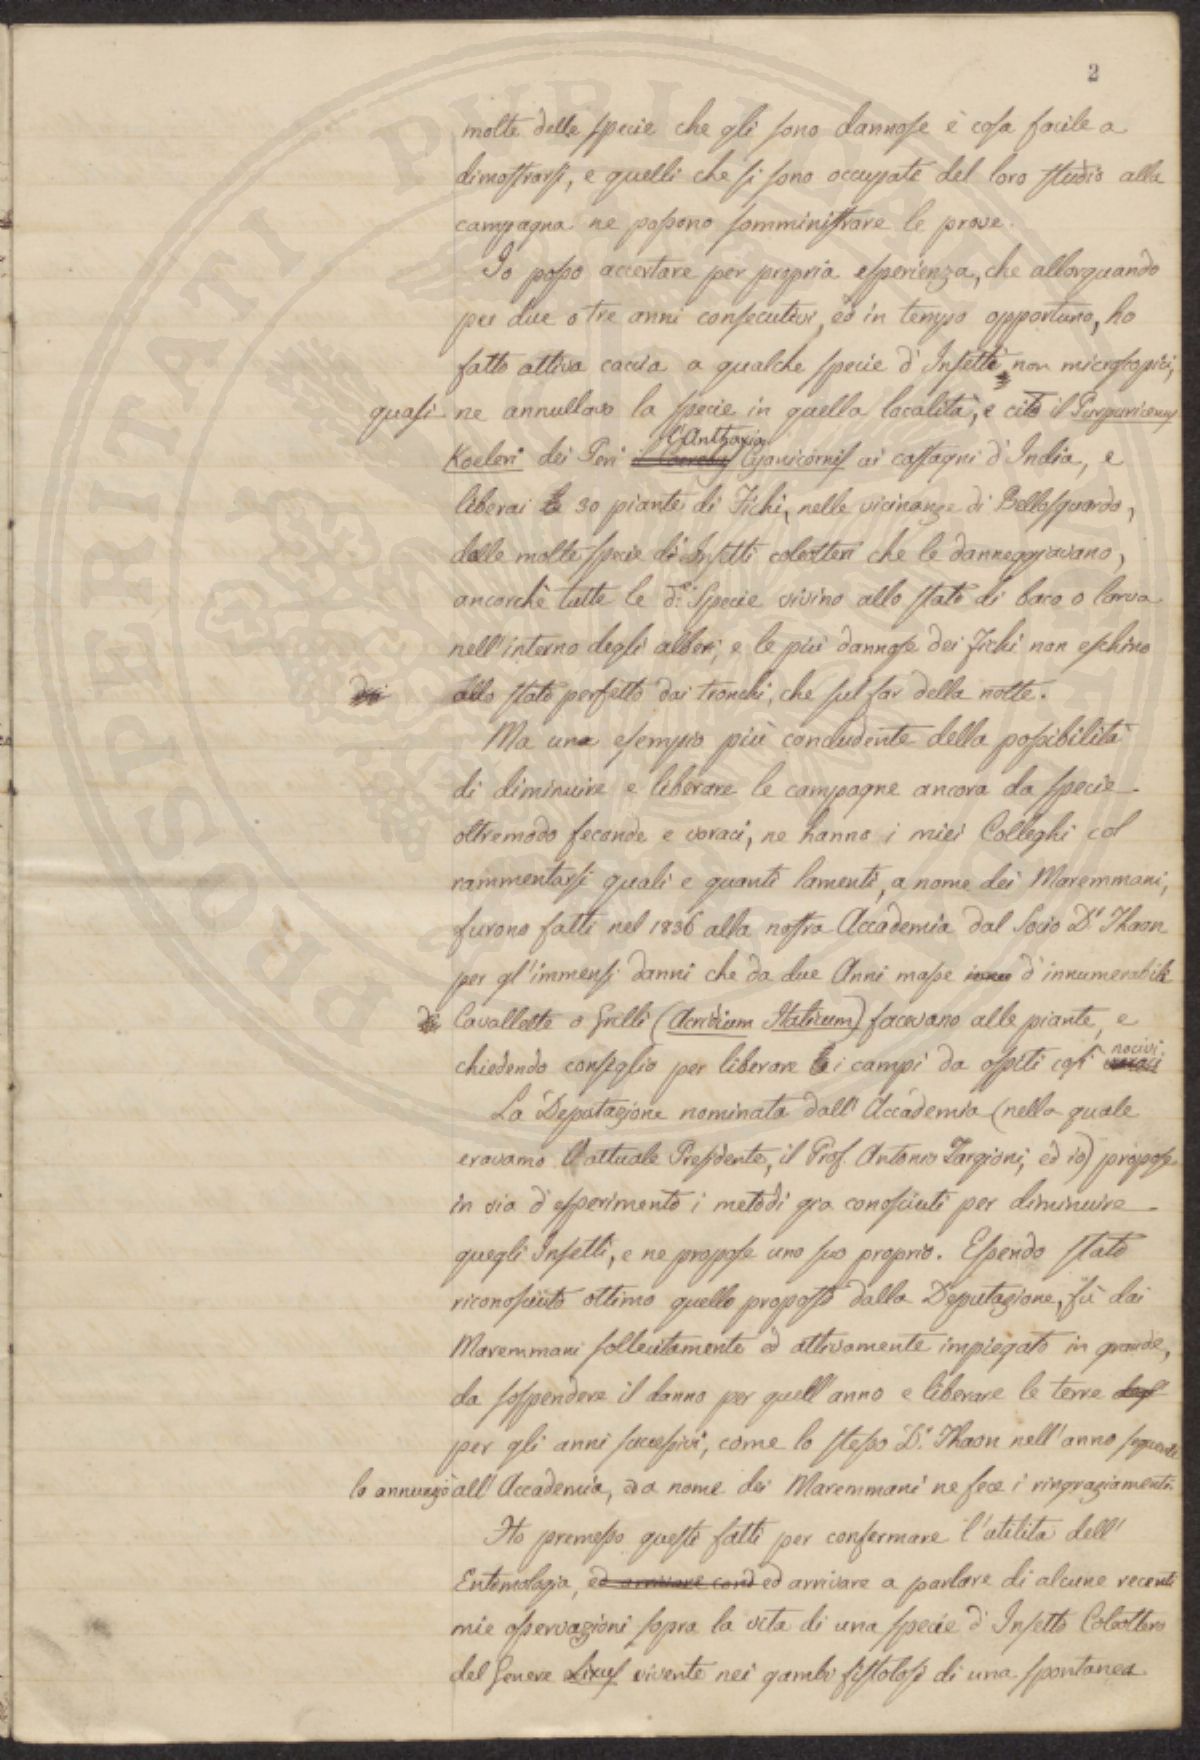 2
molte delle specie che gli sono dannose è cosa facile a
dimostrarsi, e quelli che si sono occupati del loro studio alla
campagna ne possono somministrare le prove.
Io posso accertare per propria esperienza, che allorquando
per due o tre anni consecutivi, ed in tempo opportuno, ho
fatto attiva caccia a qualche specie d'Insetti non microscopici,
quasi ne annullavo la specie in quella località, e cito il Purpuricenus
Koeleri dei Peri l'Anthaxia Cyanicornis ai castagni d'India, e
liberai 30 piante di Fichi, nelle vicinanze di Bellosguardo,
dalle molte specie di Insetti coleotteri che le danneggiavano,
ancorchè tutte le d.e Specie vivino allo stato di baco o larva
nell'interno degli alberi, e le più dannose dei Fichi non eschino
allo stato perfetto dai tronchi, che sul far della notte.
Ma una esempio più concludente della possibilità
di diminuire e liberare le campagne ancora da specie
oltremodo feconde e voraci, ne hanno i miei Colleghi col
rammentarsi quali e quanti lamenti, a nome dei Maremmani,
furono fatti nel 1836 alla nostra Accademia dal Socio D.r Thaon
per gl'immensi danni che da due Anni masse d'innumerabili
Cavallette o Grilli (Acridium Italicum) facevano alle piante, e
chiedendo consiglio per liberare i campi da ospiti così nocivi.
La Deputazione nominata dall'Accademia (nella quale
eravamo l'attuale Presidente, il Prof. Antonio Targioni, ed io) propose
in via d'esperimento i metodi già conosciuti per diminuire
quegli Insetti, e ne propose uno suo proprio. Essendo stato
riconosciuto ottimo quello proposto dalla Deputazione, fù dai
Maremmani sollecitamente ed attivamente impiegato in grande,
da sospendere il danno per quell'anno e liberare le terre
per gli anni successivi, come lo stesso D.r Thaon nell'anno seguente
lo annunziò all'Accademia, ed a nome dei Maremmani ne fece i ringraziamenti.
Ho premesso questi fatti per confermare l'utilità dell'
Entomologia, ed arrivare cond ed arrivare a parlare di alcune recenti
mie osservazioni sopra la vita di una specie d'Insetto Coleottero
del Genere Lixus vivente nei gambi fistolosi di una spontanea
PROSPERITATI PUBLICAE